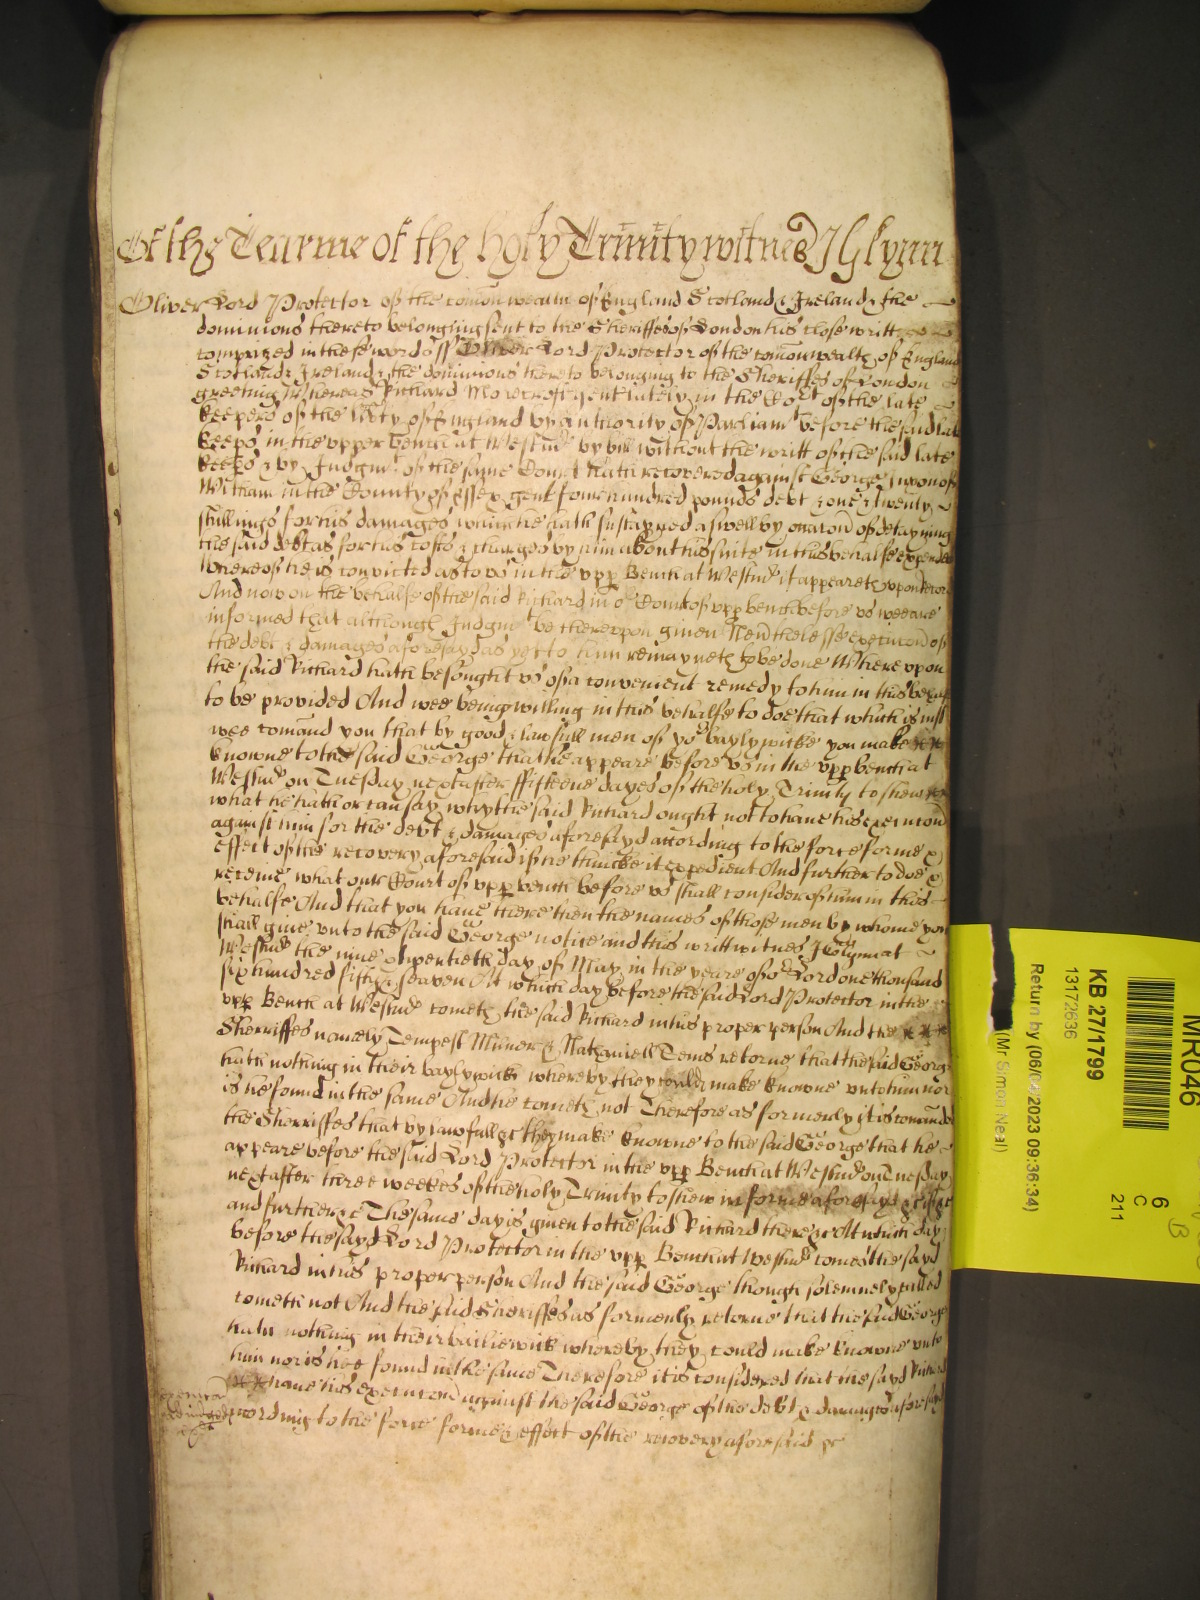 Of the Tearme of the holy Trinity witnes J Glynn
Oliver Lord Protector of the comonwealth of England Scotland & Ireland & the
dominions thereto belonging sent to the Sheriffes of London his close writt
comprized in these words ss Oliver Lord Protector of the comonwealth of England
Scotland & Ireland & the dominions thereto belonging to the Sheriffes of London
greeting Whereas Richard gent lately in the Cort of the late
keepers of the libty of England by authority of Parliamt before the said late
keeps in the upper bench at Westmr by bill without the writt of the said late
keeps & by Judgmt of the same Court hath recovered against George of
Witham in the County of Essex gent foure hundred pounds debt & one & twenty
shillings for his damages which he hath susteyned aswell by occacon of deteyning
the said debt as for his costs & charges by him about his suite in this behalfe expended
whereof he is convicted as to us in the upp Bench at Westmr it appeareth upon Record
And now on the behalfe of the said Richard in or Court of upp bench before us wee are
informed that although Judgmt be thereupon given Nevthelesse execucon of
the debt & damages aforesayd as yet to him remayneth to be done Whereupon
the said Richard hath besought us of a convenient remedy to him in this behalfe
to be provided And wee being willing in this behalfe to doe that which is just
wee comand you that by good & lawfull men of yor baylywicke you make
knowne to the said George that he appeare before us in the upp bench at
Westmr on Tuesday next after fifteene dayes of the holy Trinity to shew
what he hath or can say why the said Richard ought not to have his execucon
against him for the debt & damages aforesayd according to the force forme &
effect of the recovery aforesaid if he thincke it expedient And further to doe &
receive what our Court of upp bench before us shall consider of him in this
behalfe And that you have there then the names of those men by whome you
shall give unto the said George notice and this writt witnes J Glynn at
Westmr the nine & twentieth day of May in the yeare of or Lord one thousand
six hundred fifty & seaven At which day before the said Lord Protector in the
upp Bench at Westmr cometh the said Richard in his proper person And the
Sherriffes namely Tempest Milner & Nathaniell Tems returne that the said George
hath nothing in their baylywick whereby they could make knowne unto him nor
is he found in the same And he cometh not Therefore as formerly it is comanded
the Sherriffes that by lawfull &c they make knowne to the said George that he
appeare before the said Lord Protector in the upp Bench at Westmr on Tuesday
next after three weekes of the holy Trinity to shew in forme aforesayd &c if &c
and further &c The same day is given to the said Richard there &c At which day
before the sayd Lord Protector in the upp Bench at Westmr comes the sayd
Richard in his proper person And the said George though solemnely called
cometh not And the said Sherriffes as formerly returne that the said George
hath nothing in their bailiewick whereby they could make knowne unto
him nor is hee found in the same Therefore it is considered that the sayd Richard
have his execucon against the said George of the debt & damages aforesaid
according to the force forme & effect of the recovery aforesaid &c
MR046
KB 27/1799
13172636
Return by (06/04/2023 09:36:34)
(Mr Simon Neal)
6
C
211
B